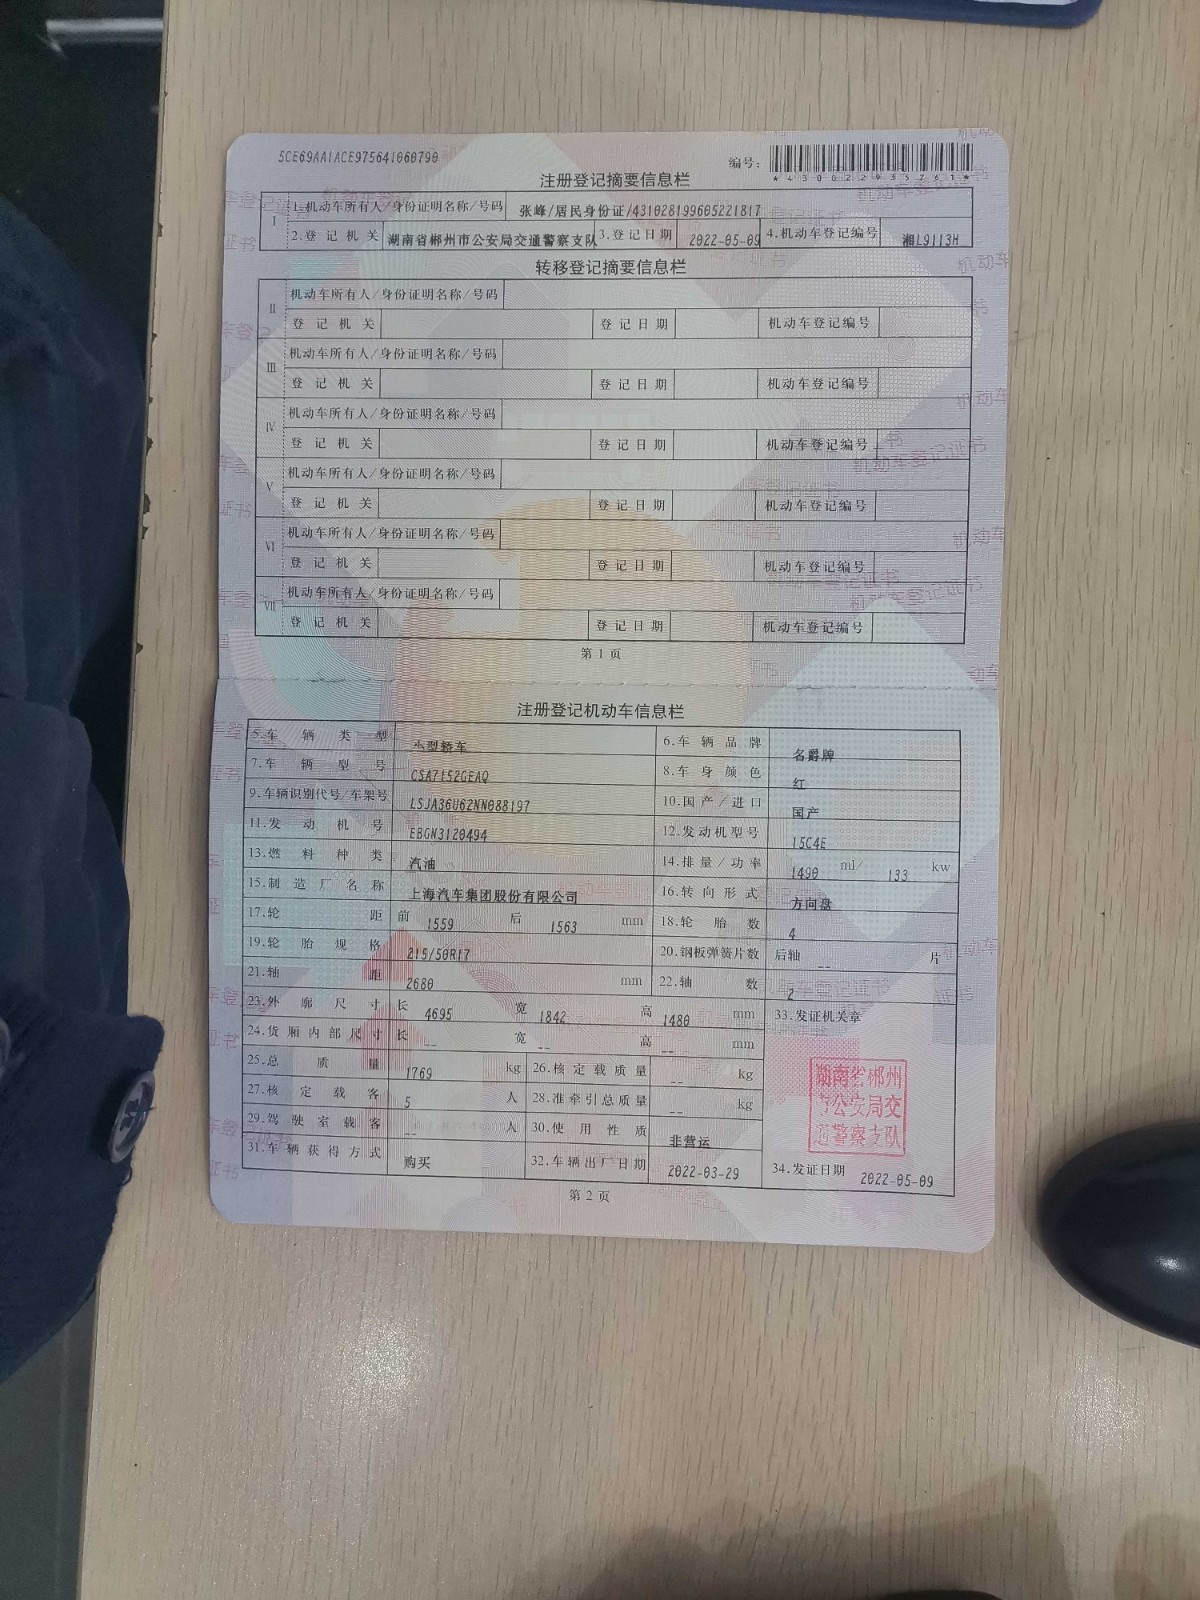 5CE69AA1ACE975641060790
编号：
*430022935261*
注册登记摘要信息栏
I 1.机动车所有人/身份证明名称/号码 张峰/居民身份证/431028199605221817
2.登记机关 湖南省郴州市公安局交通警察支队 3.登记日期 2022-05-09 4.机动车登记编号 湘L9113H
转移登记摘要信息栏
II 机动车所有人/身份证明名称/号码
登记机关 登记日期 机动车登记编号
III 机动车所有人/身份证明名称/号码
登记机关 登记日期 机动车登记编号
IV 机动车所有人/身份证明名称/号码
登记机关 登记日期 机动车登记编号
V 机动车所有人/身份证明名称/号码
登记机关 登记日期 机动车登记编号
VI 机动车所有人/身份证明名称/号码
登记机关 登记日期 机动车登记编号
VII 机动车所有人/身份证明名称/号码
登记机关 登记日期 机动车登记编号
第1页
注册登记机动车信息栏
5.车辆类型 小型轿车 6.车辆品牌 名爵牌
7.车辆型号 CSA7152GEAQ 8.车身颜色 红
9.车辆识别代号/车架号 LSJA36U62NN088197 10.国产/进口 国产
11.发动机号 EBGN3120494 12.发动机型号 15C4E
13.燃料种类 汽油 14.排量/功率 1490 ml/ 133 kw
15.制造厂名称 上海汽车集团股份有限公司 16.转向形式 方向盘
17.轮距 前 1559 后 1563 mm 18.轮胎数 4
19.轮胎规格 215/50R17 20.钢板弹簧片数 后轴 -- 片
21.轴距 2680 mm 22.轴数 2
23.外廓尺寸 长 4695 宽 1842 高 1480 mm 33.发证机关章
24.货厢内部尺寸 长 -- 宽 -- 高 -- mm
25.总质量 1769 kg 26.核定载质量 -- kg
27.核定载客 5 人 28.准牵引总质量 -- kg
29.驾驶室载客 -- 人 30.使用性质 非营运
31.车辆获得方式 购买 32.车辆出厂日期 2022-03-29 34.发证日期 2022-05-09
湖南省郴州
市公安局交
通警察支队
第2页